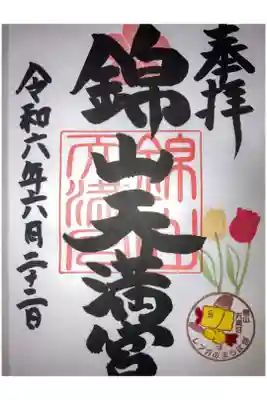 奉拝
錦山天満宮
令和六年六月二十二日
錦山
天満宮